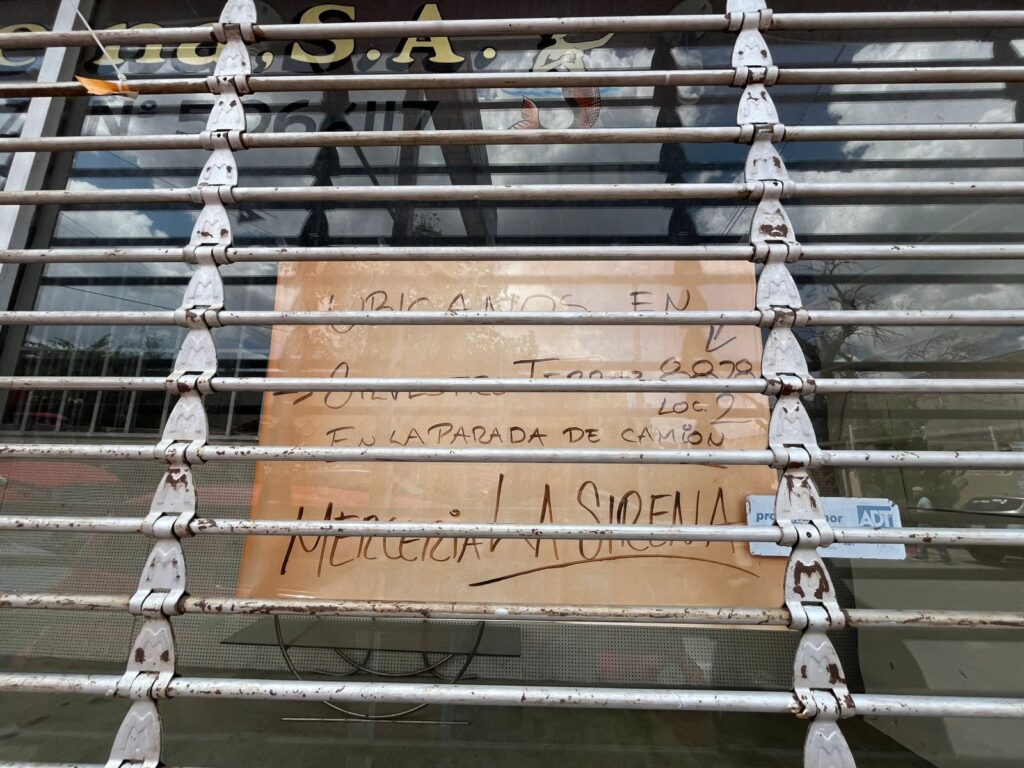 ena, S.A.
Nº 526 6117
UBICANOS EN
→ SILVESTRE TERRAZ 8878
LOC. 2
EN LA PARADA DE CAMION
MERCERIA LA SIRENA
por
ADT